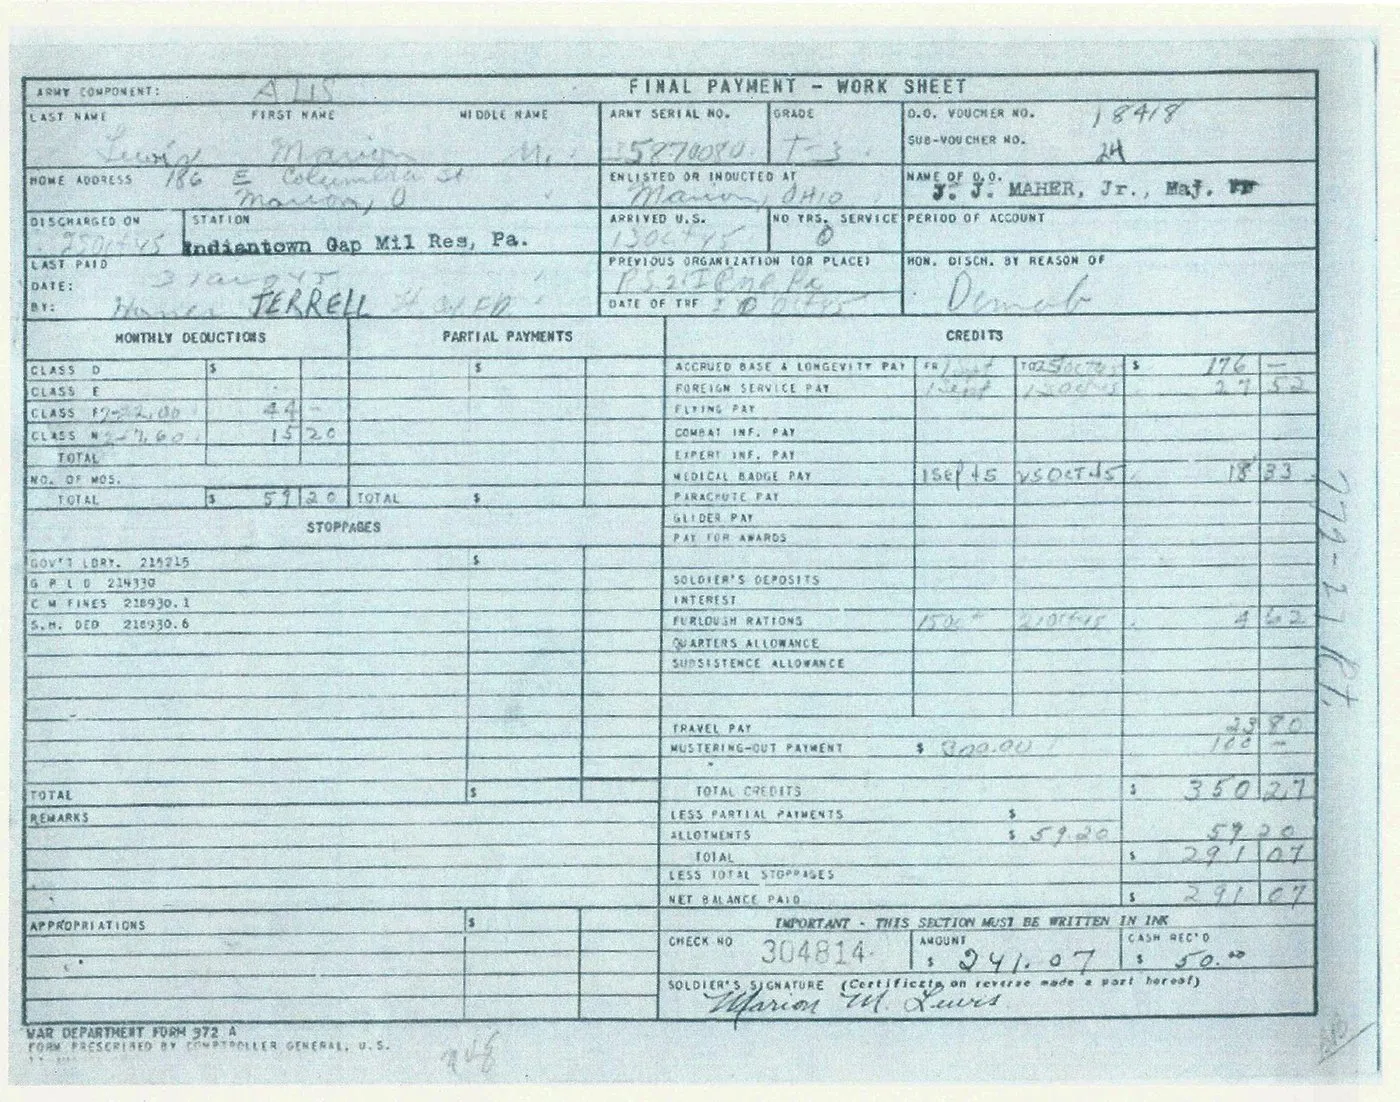 ARMY COMPONENT: AUS FINAL PAYMENT - WORK SHEET
LAST NAME FIRST NAME MIDDLE NAME ARMY SERIAL NO. GRADE D.O. VOUCHER NO. 18418
Lewis Marion M. 35870080 T-3 SUB-VOUCHER NO. 24
HOME ADDRESS 186 E Columbia St ENLISTED OR INDUCTED AT NAME OF D.O.
Marion, O Marion, OHIO J. J. MAHER, Jr., Maj.
DISCHARGED ON STATION ARRIVED U.S. NO YRS. SERVICE PERIOD OF ACCOUNT
25Oct45 Indiantown Gap Mil Res, Pa. 13Oct45 0
LAST PAID PREVIOUS ORGANIZATION (OR PLACE) HON. DISCH. BY REASON OF
DATE: 31Aug45 Demob
BY: Homer TERRELL DATE OF TRF Oct45
MONTHLY DEDUCTIONS PARTIAL PAYMENTS CREDITS
CLASS D $ $ ACCRUED BASE & LONGEVITY PAY FR 1Sept TO 25Oct45 $ 176 —
CLASS E FOREIGN SERVICE PAY 1Sept 13Oct45 27 52
CLASS F 2-22.00 44 — FLYING PAY
CLASS N 2-7.60 15 20 COMBAT INF. PAY
TOTAL EXPERT INF. PAY
NO. OF MOS. MEDICAL BADGE PAY 1SEP45 25OCT45 18 33
TOTAL $ 59 20 TOTAL $ PARACHUTE PAY
GLIDER PAY
STOPPAGES PAY FOR AWARDS
GOV'T LDRY. 215215 $
G P L D 214330 SOLDIER'S DEPOSITS
C M FINES 218930.1 INTEREST
S.H. DED 218930.6 FURLOUGH RATIONS 15Oct 21Oct45 4 62
QUARTERS ALLOWANCE
SUBSISTENCE ALLOWANCE
TRAVEL PAY 23 80
MUSTERING-OUT PAYMENT $ 300.00 100 —
TOTAL $ TOTAL CREDITS $ 350 27
REMARKS LESS PARTIAL PAYMENTS $
ALLOTMENTS $ 59.20 59 20
TOTAL $ 291 07
LESS TOTAL STOPPAGES
NET BALANCE PAID $ 291 07
APPROPRIATIONS $ IMPORTANT - THIS SECTION MUST BE WRITTEN IN INK
CHECK NO 304814 AMOUNT $ 241.07 CASH REC'D $ 50.00
SOLDIER'S SIGNATURE (Certificate on reverse made a part hereof)
Marion M. Lewis
WAR DEPARTMENT FORM 372 A
FORM PRESCRIBED BY COMPTROLLER GENERAL, U.S.